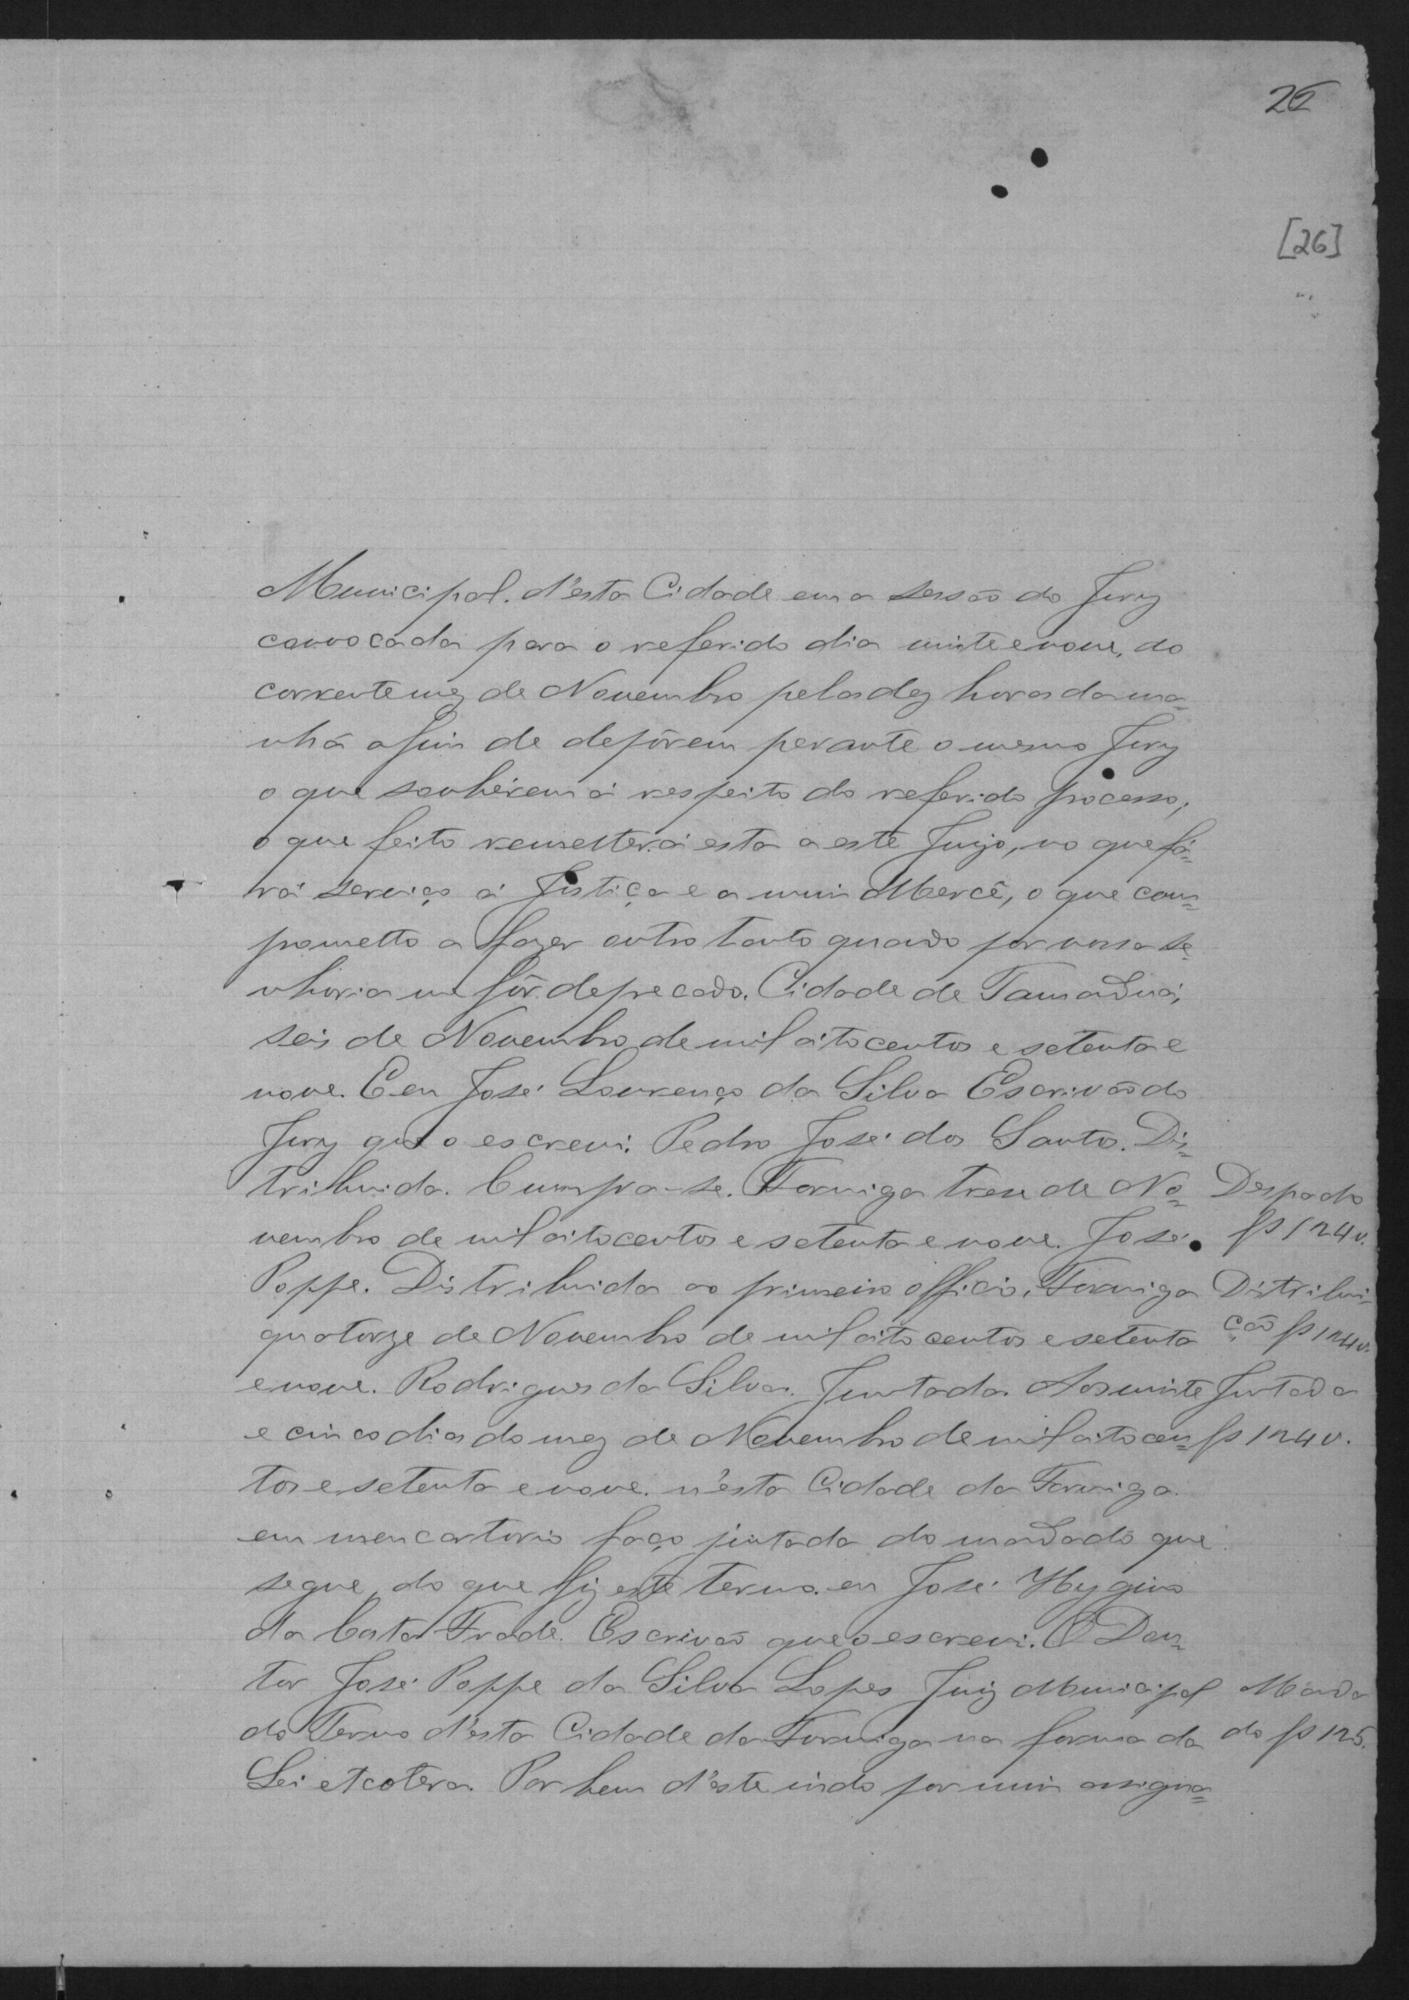 26
[26]
Municipal. d'esta Cidade em a sessão do Jury
convocada para o referido dia vinte e nove, do
corrente mez de Novembro pelas dez horas da ma=
nhã afim de depôrem perante o mesmo Jury
o que souhérem á respeito do referido processo,
o que feito remetterá esta a este Juizo, no que fa=
rá serviço á Justiça e a mim Mercê, o que com=
prometto a fazer outro tanto quando por vossa Se=
nhoria me fôr deprecado. Cidade de Tamanduá,
seis de Novembro de mil oitocentos e setenta e
nove. E eu José Lourenço da Silva Escrivão do
Jury que o escrevi. Pedro José dos Santos. Dis=
tribuida. Cumpra-se. Formiga trese de No=
Despacho
vembro de mil oitocentos e setenta e nove. José
fs 124 v.
Poppe. Distribuida ao primeiro officio, Formiga
Distribui=
quatorze de Novembro de mil oitocentos e setenta
ção fs 124 v.
e nove. Rodrigues da Silva. Juntada. Aos vinte
Juntada
e cinco dias do mez de Novembro de mil oitocen=
fs 124 v.
tos e setenta e nove. n'esta Cidade da Formiga
em meu cartorio faço juntada do mandado que
segue, do que fiz este termo. eu José Hygino
da Costa Frade. Escrivão que o escrevi. O Dou=
tor José Poppe da Silva Lopes Juiz Municipal
Manda
do Termo d'esta Cidade da Formiga na forma da
do fs 125.
Lei etcetera. Por bem d'este indo por mim assigna=